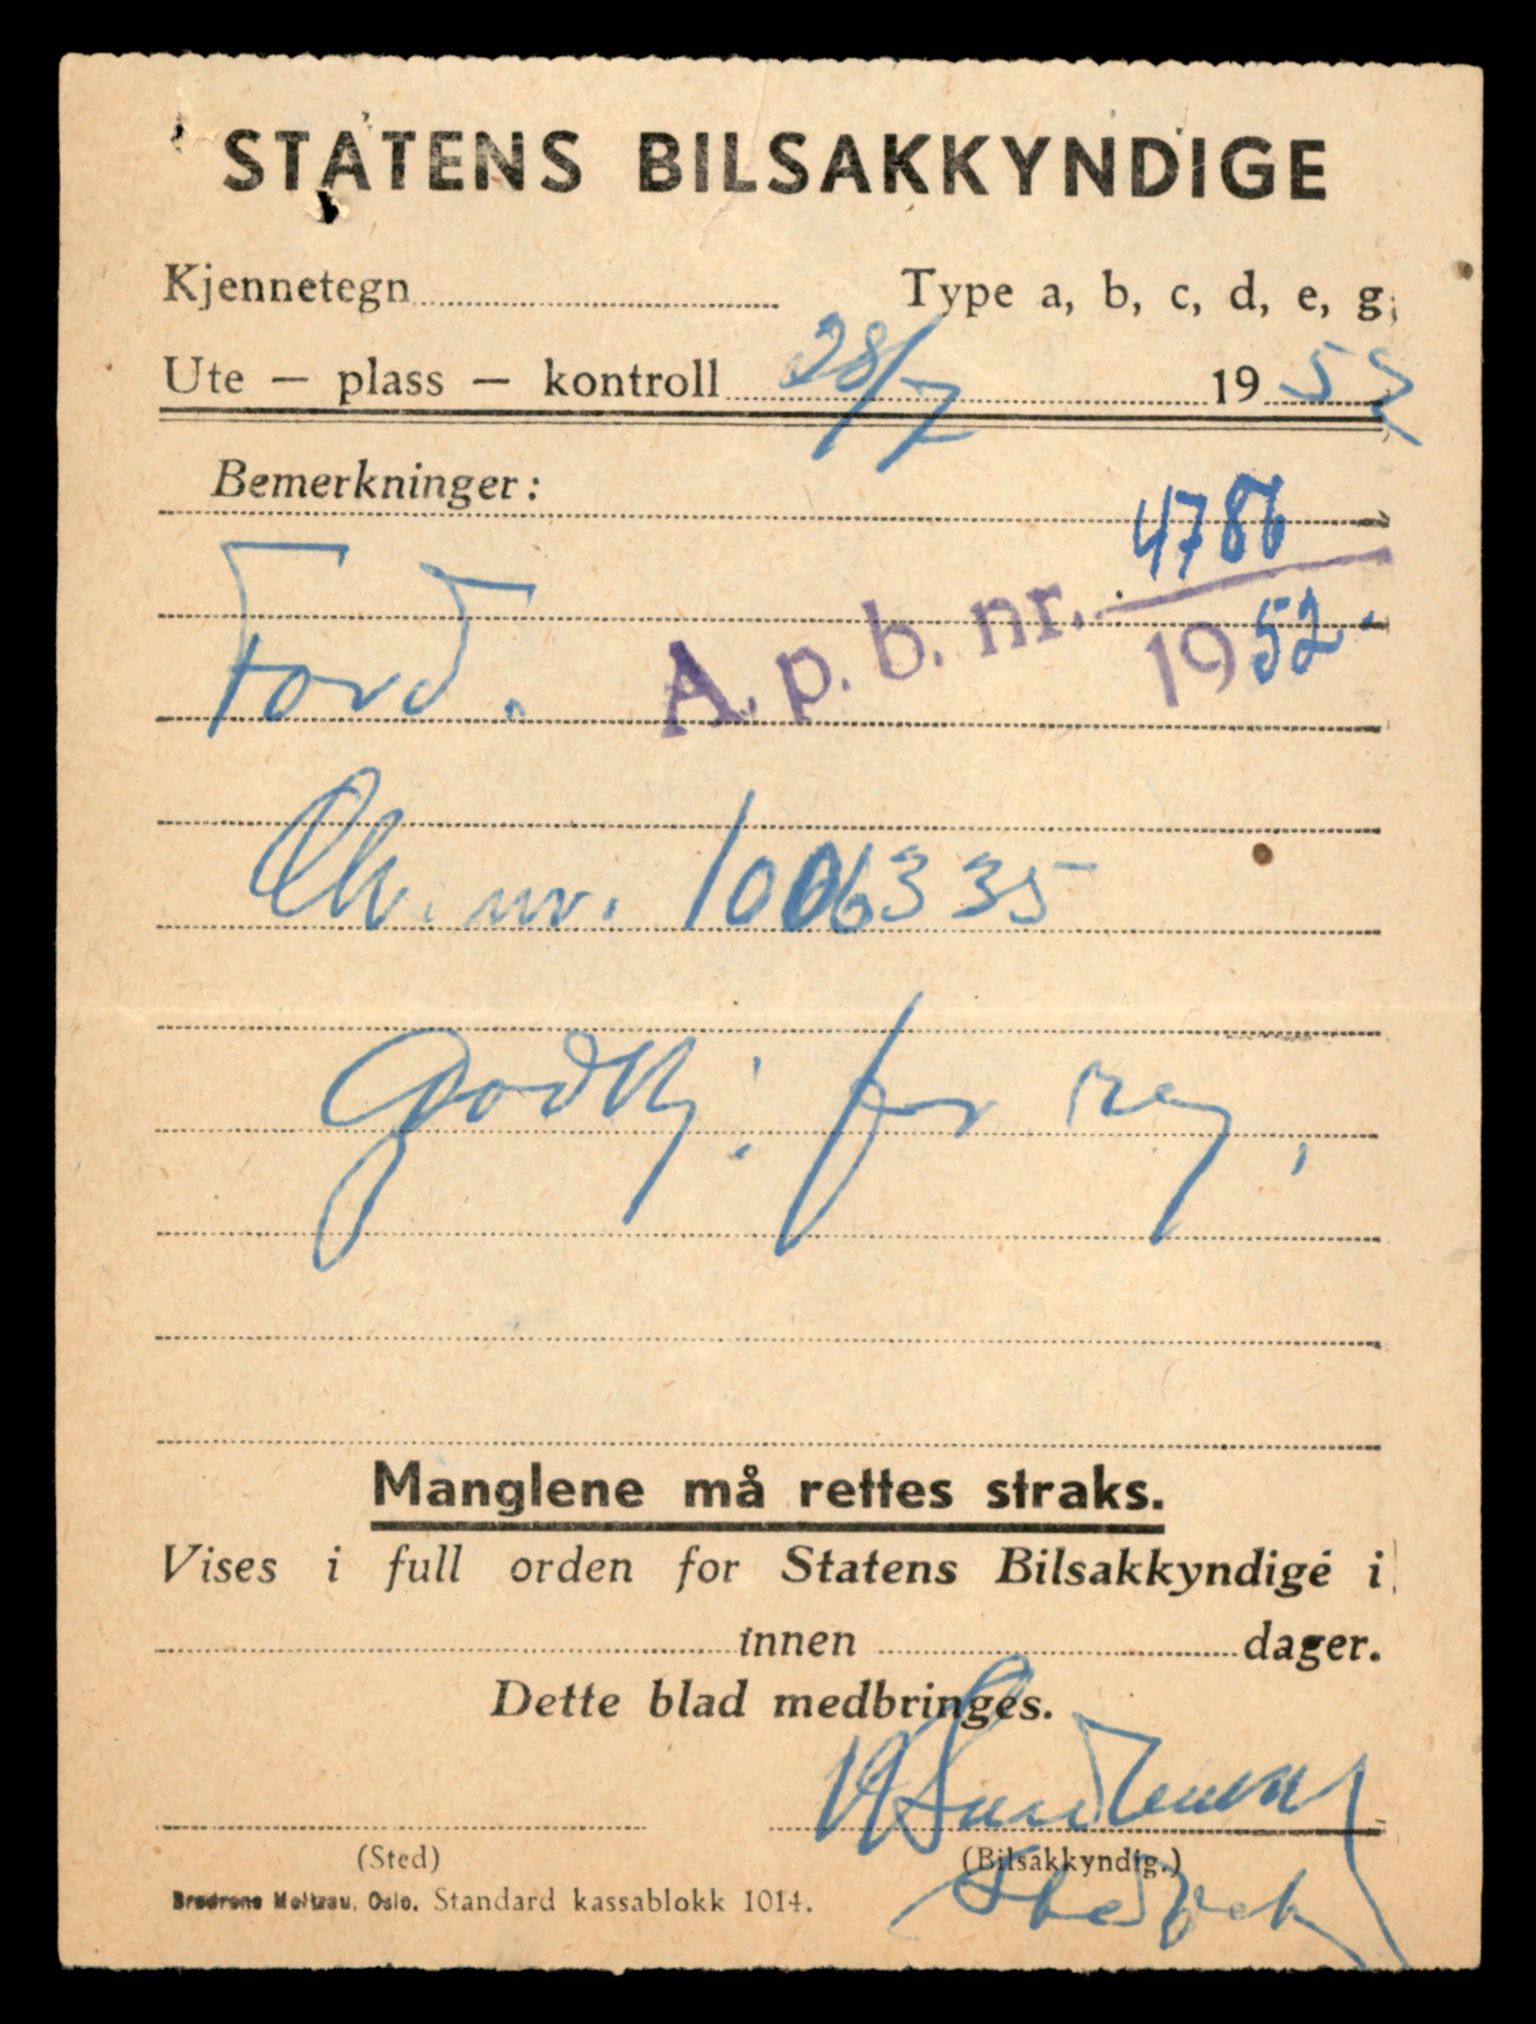 STATENS BILSAKKYNDIGE
Kjennetegn Type a, b, c, d, e, g,
Ute – plass – kontroll 28/7 1952
Bemerkninger:
4786
Ford. A. p. b. nr. 1952.
Ch. nr. 1006335
Godkj. for reg.
Manglene må rettes straks.
Vises i full orden for Statens Bilsakkyndige i
innen dager.
Dette blad medbringes.
(Sted) (Bilsakkyndig.)
Brødrene Moltzau, Oslo. Standard kassablokk 1014.